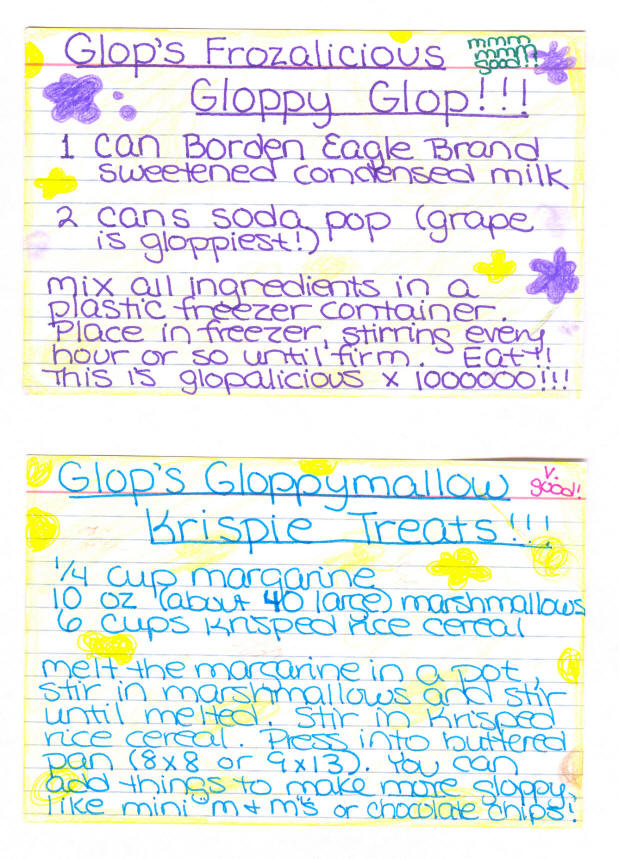 Glop's Frozalicious
mmm
mmm
good!!
Gloppy Glop!!!
1 can Borden Eagle Brand
sweetened condensed milk
2 cans soda pop (grape
is gloppiest!)
mix all ingredients in a
plastic freezer container.
Place in freezer, stirring every
hour or so until firm. Eat!!
This is glopalicious x 1000000!!!
Glop's Gloppymallow
v.
good!
Krispie Treats!!!
1/4 cup margarine
10 oz (about 40 large) marshmallows
6 cups krisped rice cereal
melt the margarine in a pot,
stir in marshmallows and stir
until melted. Stir in krisped
rice cereal. Press into buttered
pan (8x8 or 9x13). You can
add things to make more gloppy,
like mini "m+m"s or chocolate chips!